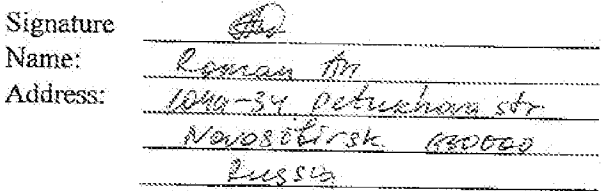 Signature
Name: Roman An
Address: 104a-34 Petukhova str.
Novosibirsk 630000
Russia